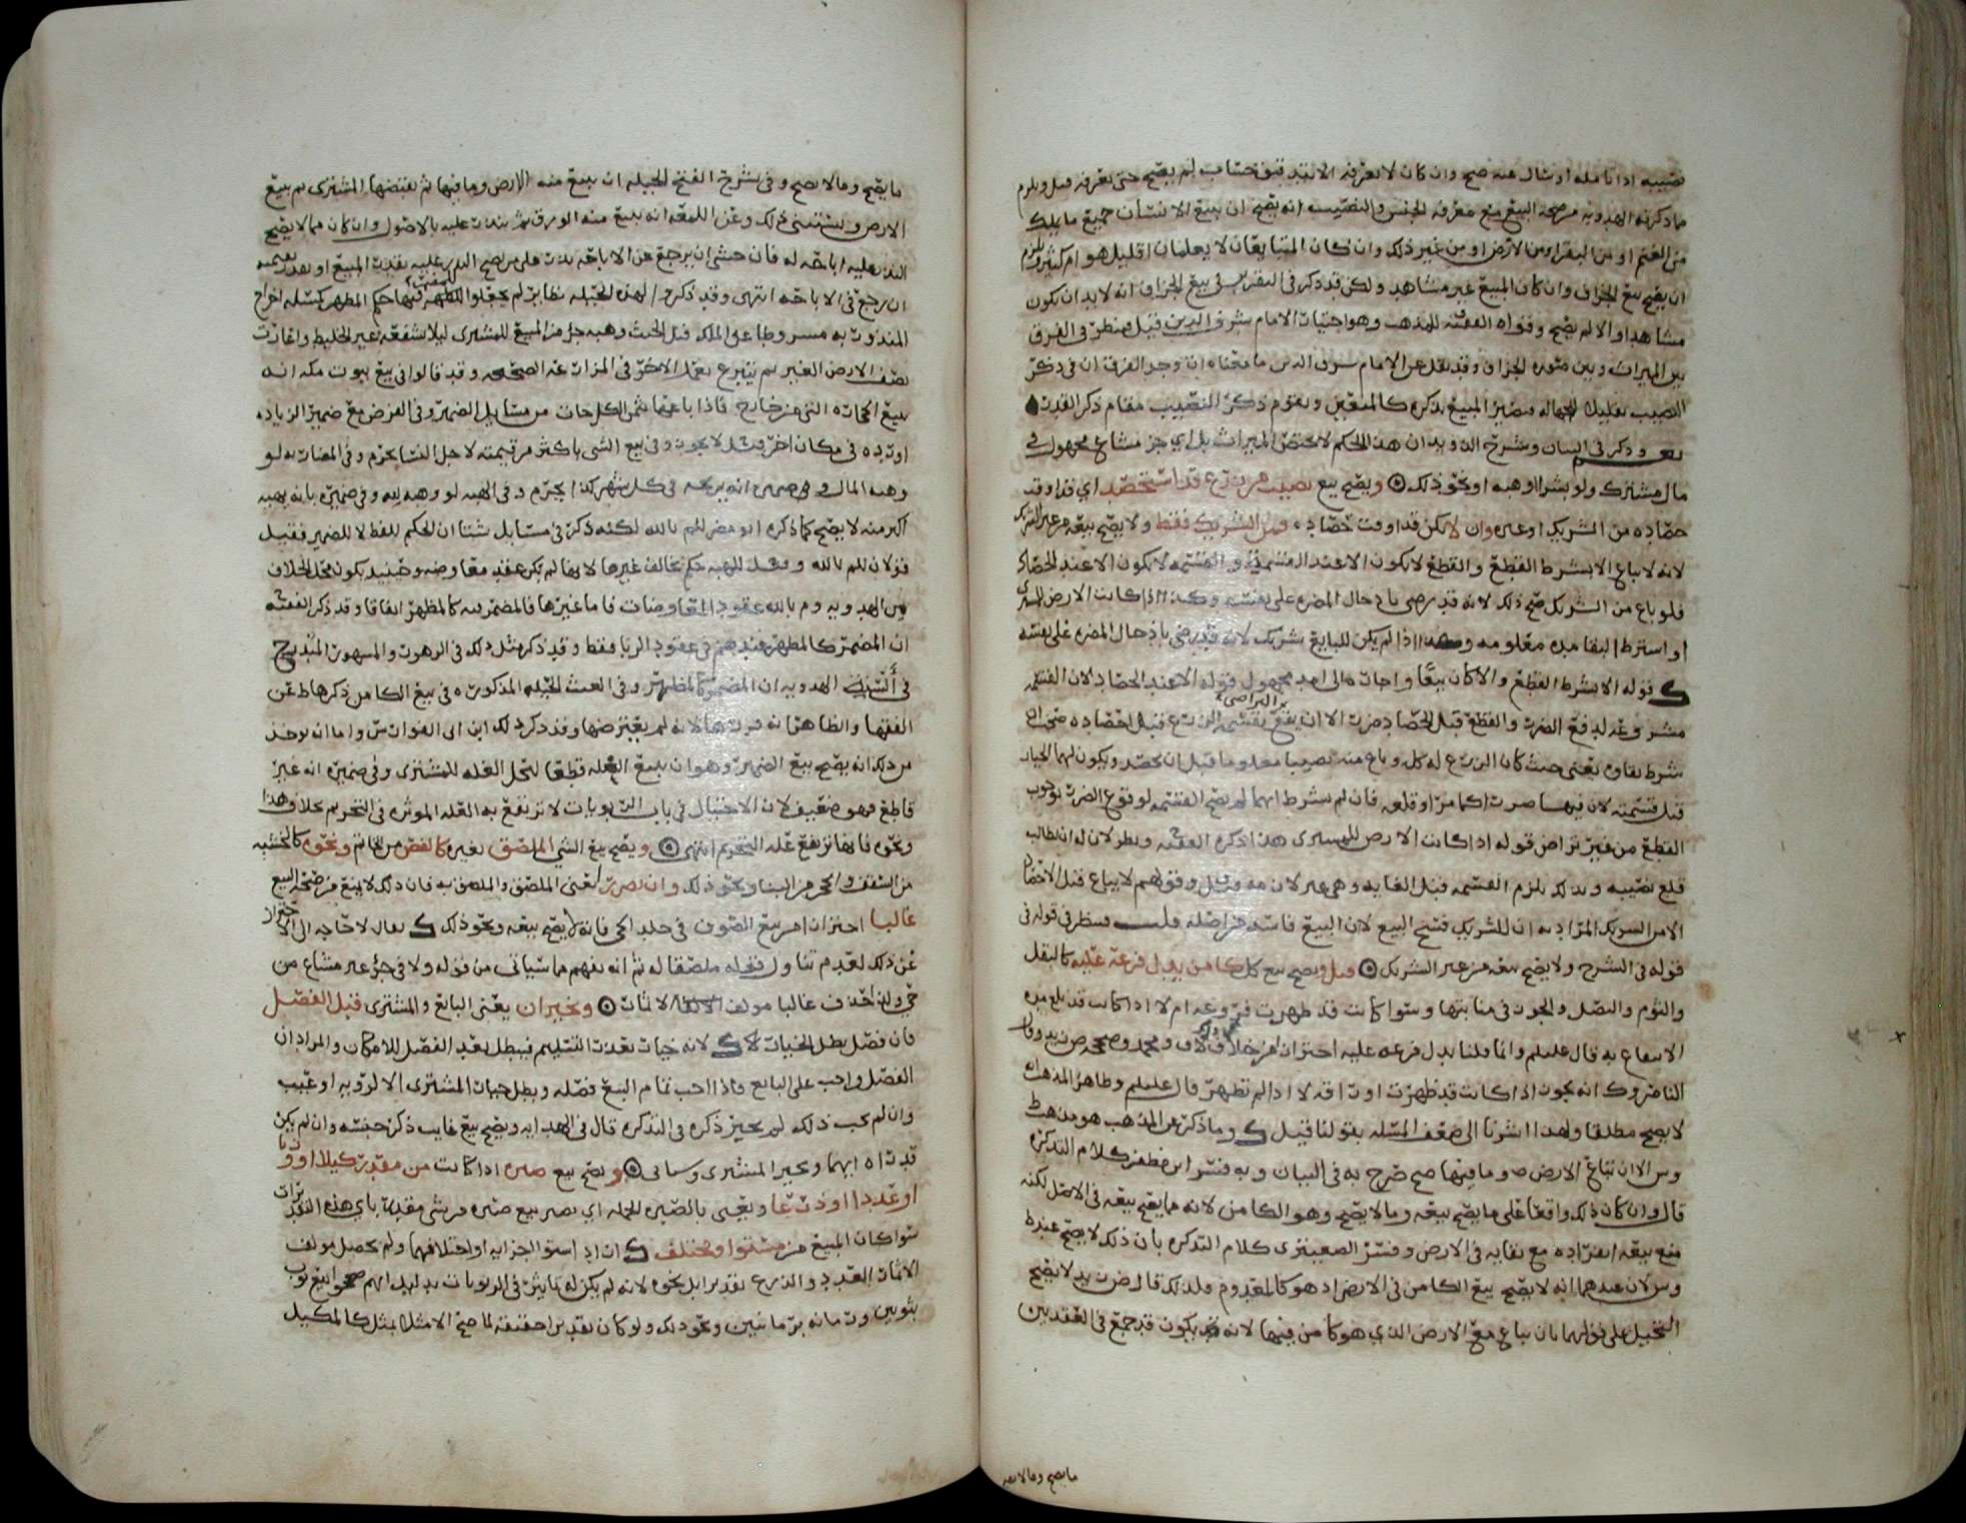 نصيبه اذا تامله او سال عنه صح وان كان لا يعرفه الا بتدقيق حساب لم يصح حتى يعرفه قيل ويلزم
ما ذكرته الهدويه من صحة البيع مع معرفه الجنس والنصيب انه يصح ان يبيع الانسان جميع ما يملك
من الغنم او من البقر او من الارض او من غير ذلك وان كان المتبايعان لا يعلمان اقليل هو ام كثير ويلزم
ان يصح بيع الجزاف وان كان المبيع غير مشاهد ولكن قد ذكر في التقرير في بيع الجزاف انه لا بد ان يكون
مشاهدا والا لم يصح وقواه الفقيه للمذهب وهو اختيار الامام شرف الدين قيل فينظر في الفرق
بين الميراث وبين صوره الجزاف وقد نقل عن الامام شرف الدين ما معناه ان وجه الفرق ان في ذكر
النصيب تقليلا للجهاله فيصير المبيع بذكره كالمتعين ويقوم ذكر النصيب مقام ذكر القدر
وذكر في البيان وشرح الذويد ان هذا الحكم لا يختص الميراث بل اي جز مشاع مجهول في
مال مشترك ولو بشرا او هبه او نحو ذلك ويصح بيع نصيب من زرع قد استحصد اي قد اوقد
حصاده من الشريك او غيره وان لا يكن قد اوقت حصاده فمن الشريك فقط ولا يصح بيعه من غير الشريك
لانه لا يباع الا بشرط القطع والقطع لا يكون الا عند القسمه والقسمه لا يكون الا عند الحصاد
فلو باع من الشريك صح ذلك لانه قد رضي بادخال المضره على نفسه وكذا اذا كانت الارض للمشتري
او اشترط البقا مده معلومه وهذا اذا لم يكن للبايع شريك لانه قد رضي باذخال المضره على نفسه
ك قوله الا بشرط القطع والا كان بيعا واجاره الى امد مجهول قوله الا عند الحصاد لان القسمه
مشروعه لدفع الضرر والقطع قبل الحصاد ضرر الا ان يقع بقسمه الزرع قبل احصاده صح ان
بالتراضي
شرط بقاوه يعني حيث كان الزرع له كل وباع منه نصيبا معلوما قبل ان يحصد ويكون لهما الخيار
قبل قسمته لان فيها ضرر اكما مر او قلعه فان لم يشرط ايهما لم يصح القسمه لوقوع الضرر بوجوب
القطع من غير تراض قوله اذا كانت الارض للمشتري هذا ذكره الفقيه وينظر لان له ان يطالب
قلع نصيبه وبذلك يلزم القسمه قبل الغايه وهي غير لازمه وقيل وقولهم لا يباع قبل الاحصاد
الا من الشريك المراد به ان للشريك فسخ البيع لان البيع فاسد من اصله قلت وينظر في قوله في
قوله في الشرح ولا يصح بيعه من غير الشريك قيل ويصح بيع كل كامن يدل فرعه عليه كالبقل
والثوم والبصل والجزر في منابتها وسوا كانت قد ظهرت فروعه ام لا اذا كانت قد بلغ مده
الانتفاع به قال عليلم وانما قلنا يدل فرعه عليه احترازا من خلاف ف ومحمد وصححه ض زيد وقال
الناصر وك انه يجوز اذا كانت قد ظهرت اوراقه لا اذا لم تظهر قال عليلم وظاهر المذهب انه
لا يصح مطلقا ولهذا اشرنا الى ضعف المسله بقولنا قيل ك وما ذكر عن المذهب هو مذهب
وس الا ان تباع الارض ه وما فيها صح صرح به في البيان وبه فسر ابن مظفر كلام التذكره
قال وان كان ذلك واقعا على ما يصح بيعه وما لا يصح وهو الكامن لانه مما يصح بيعه في الاصل لكنه
منع بيعه انفراده مع بقايه في الارض وفسر الصعيتري كلام التذكره بان ذلك لا يصح عند ط
وس لان عندهما انه لا يصح بيع الكامن في الارض اذ هو كالمعدوم ولذلك قال ض زيد لا يصح
التحيل على قولهما بان يباع مع الارض الذي هو كامن فيها لانه يكون قد جمع في العقد بين
ما يصح وما لا يصح
ما يصح وما لا يصح وفي شرح الفتح الحيله ان يبيع منه الارض وما فيها ثم يقبضها المشتري ثم يبيع
الارض ويستثني ذلك وعن اللمع انه يبيع منه الورق ثم ينذر عليه بالاصول وان كان مما لا يصح
النذر عليه اباحه له فان خشي ان يرجع عن الاباحه نذر على من يصح النذر عليه بقدر المبيع او بقدر قيمته
ان رجع في الاباحه انتهى وقد ذكروا لهذه الحيله نظاير لم يجعلوا للمضمر فيها حكم المظهر كمسله اخراج
المنذور به مشروطا عن الملك قبل الحنث وهبه جز من المبيع للمشتري ليلا تشفعه غير الخليط واعارت
نصف الارض الغير ثم يتبرع بعمل الاخر في المزارعه الصحيحه وقد قالوا في بيع بيوت مكه انه
يبيع الحجاره التي من خارج فاذا باعهما بثمن الكل جاز من مسايل الضمير وفي القرض مع ضمير الزياده
او رده في مكان اخر ومثله لا يجوز وفي بيع الشي باكثر من قيمته لاجل النسا يحرم وفي المضاربه لو
وهبه المال وفي ضميره انه يربحه في كل شهر كذا يحرم وفي الهبه لو وهبه لله وفي ضميره بانه يهبه
اكثر منه لا يصح كما ذكره ابو مضر للم بالله لكنه ذكر في مسايل شتا ان الحكم للفظ لا للضمير فقيل
قولان للم بالله وقيل للهبه حكم يخالف غيرها لانها لم يكن عقد معاوضه وحينيذ يكون محل الخلاف
بين الهدويه وم بالله عقود المعاوضات فاما غيرها فالمضمر فيه كالمظهر اتفاقا وقد ذكر الفقيه
ان المضمر كالمظهر عندهم في عقود الربا فقط وقد ذكر مثل ذلك في الزهور والمشهور المتدرج
في السنه الهدويه ان المضمر كالمظهر وفي الغيث الحيله المذكوره في بيع الكامن ذكرها ط عن
الفقها والظاهر انه قررها لانه لم يعترضها وقد ذكر ذلك ابن ابي الفوارس واما انه يوخذ
من ذلك انه يصح بيع الضمير وهو ان يبيع الغله قطعا لتحل الغله للمشتري وفي ضميره انه غير
قاطع فهو ضعيف لان الاحتيال في باب الربويات لا ترتفع به العله الموثره في التحريم بخلاف هذا
ونحوه فانها ترتفع عله التحريم انتهى ويصح بيع الشي الملصق بغيره كالفص من الخاتم ونحوه كالخشبه
من السقف والحجر من البنا ونحو ذلك وان تضرر يعني الملصق والملصق به فان ذلك لا يمنع من صحه البيع
غالبا احترازا من بيع الصوف في جلد الحي فانه لا يصح بيعه ونحو ذلك ك يقال لا حاجه الى الاحتراز
عن ذلك لعدم تناول قوله ملصقا له ثم انه يفهم مما سياتي من قوله ولا في جز غير مشاع من
حي ولذا حذف غالبا مولف الاثمار ويخيران يعني البايع والمشتري قبل الفصل
فان فصل بطل الخيار ك لانه خيار تعذر التسليم فيبطل بعد الفصل للامكان والمراد ان
الفصل واجب على البايع فاذا احب تمام البيع فصله ويبطل خيار المشتري الا لرويه او عيب
وان لم يحب ذلك لم يجبر ذكره في التذكره قال في الهدايه ويصح بيع غايب ذكر جنسه وان لم يكن
قد راه ايهما ويخير المشتري وسياتي ويصح بيع صبره اذا كانت من مقدر كيلا او وزنا
او عددا او ذرعا ويعني بالصبره الجمله اي يصح بيع صبره من شي مقدر باي هذه التقديرات
سوا كان المبيع من مستوا ومختلف ك ان اراد استوا اجزايه او اختلافها ولم يجعل مولف
الاثمار العدد والذرع تقديرا بل نحوه لانه لم يكن له تاثير في الربويات بدليل انهم صححوا بيع ثوب
بثوبين ورمانه برمانتين ونحو ذلك ولو كان تقديرا حقيقه لما صح الا مثلا بمثل كالمكيل